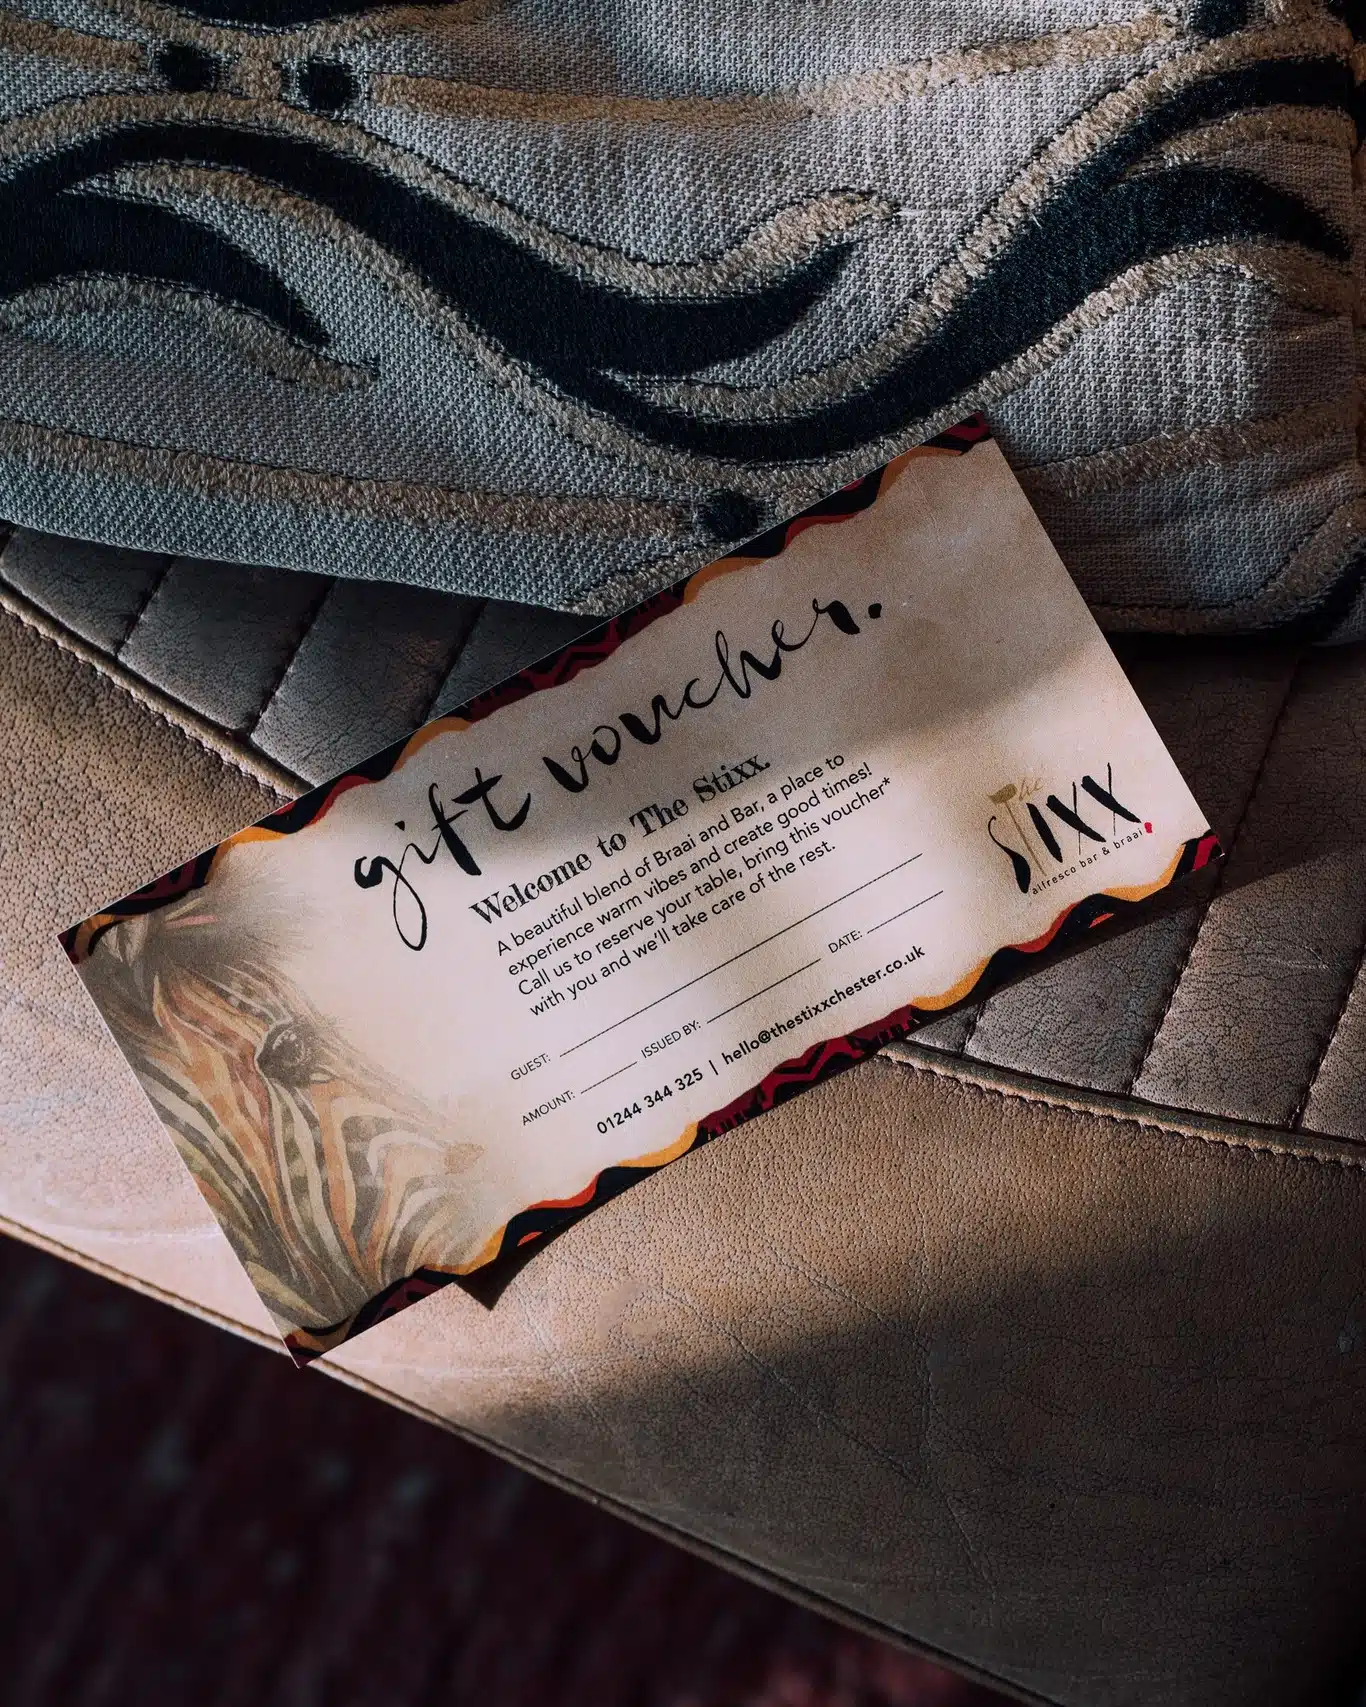 gift voucher.
Welcome to The Stixx.
A beautiful blend of Braai and Bar, a place to
experience warm vibes and create good times!
Call us to reserve your table, bring this voucher*
with you and we'll take care of the rest.
GUEST:
AMOUNT: ISSUED BY: DATE:
01244 344 325 | hello@thestixxchester.co.uk
The
STIXX
alfresco bar & braai